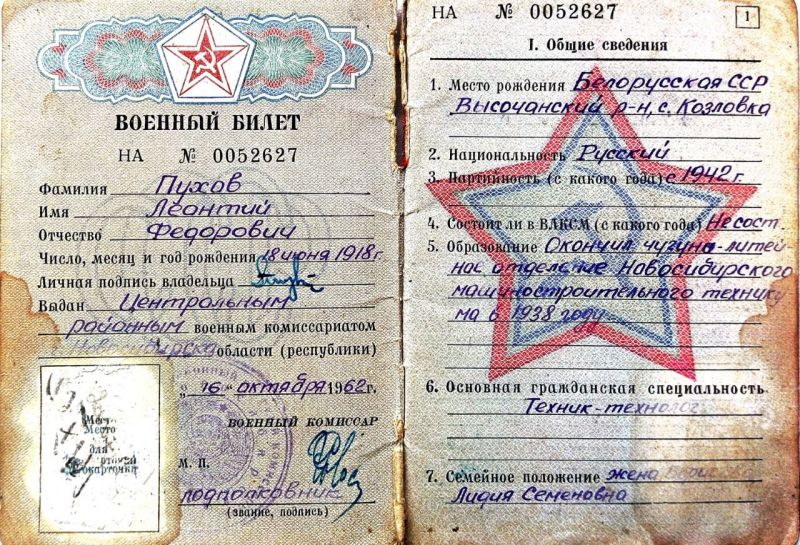 ВОЕННЫЙ БИЛЕТ
НА № 0052627
Фамилия Пухов
Имя Леонтий
Отчество Федорович
Число, месяц и год рождения 18 июня 1918г.
Личная подпись владельца
Выдан Центральным
районным военным комиссариатом
области (республики)
„16“ октября 1962г.
ВОЕННЫЙ КОМИССАР
Место
для
М. П.
подполковник
(звание, подпись)
НА № 0052627
1
I. Общие сведения
1. Место рождения Белорусская ССР
Высочанский р-н, с. Козловка
2. Национальность Русский
3. Партийность (с какого года) с 1942 г.
4. Состоит ли в ВЛКСМ (с какого года) Не сост.
5. Образование Окончил чугуно-литей-
ное отделение Новосибирского
машиностроительного технику
ма в 1938 году
6. Основная гражданская специальность
Техник-технолог
7. Семейное положение жена
Лидия Семеновна